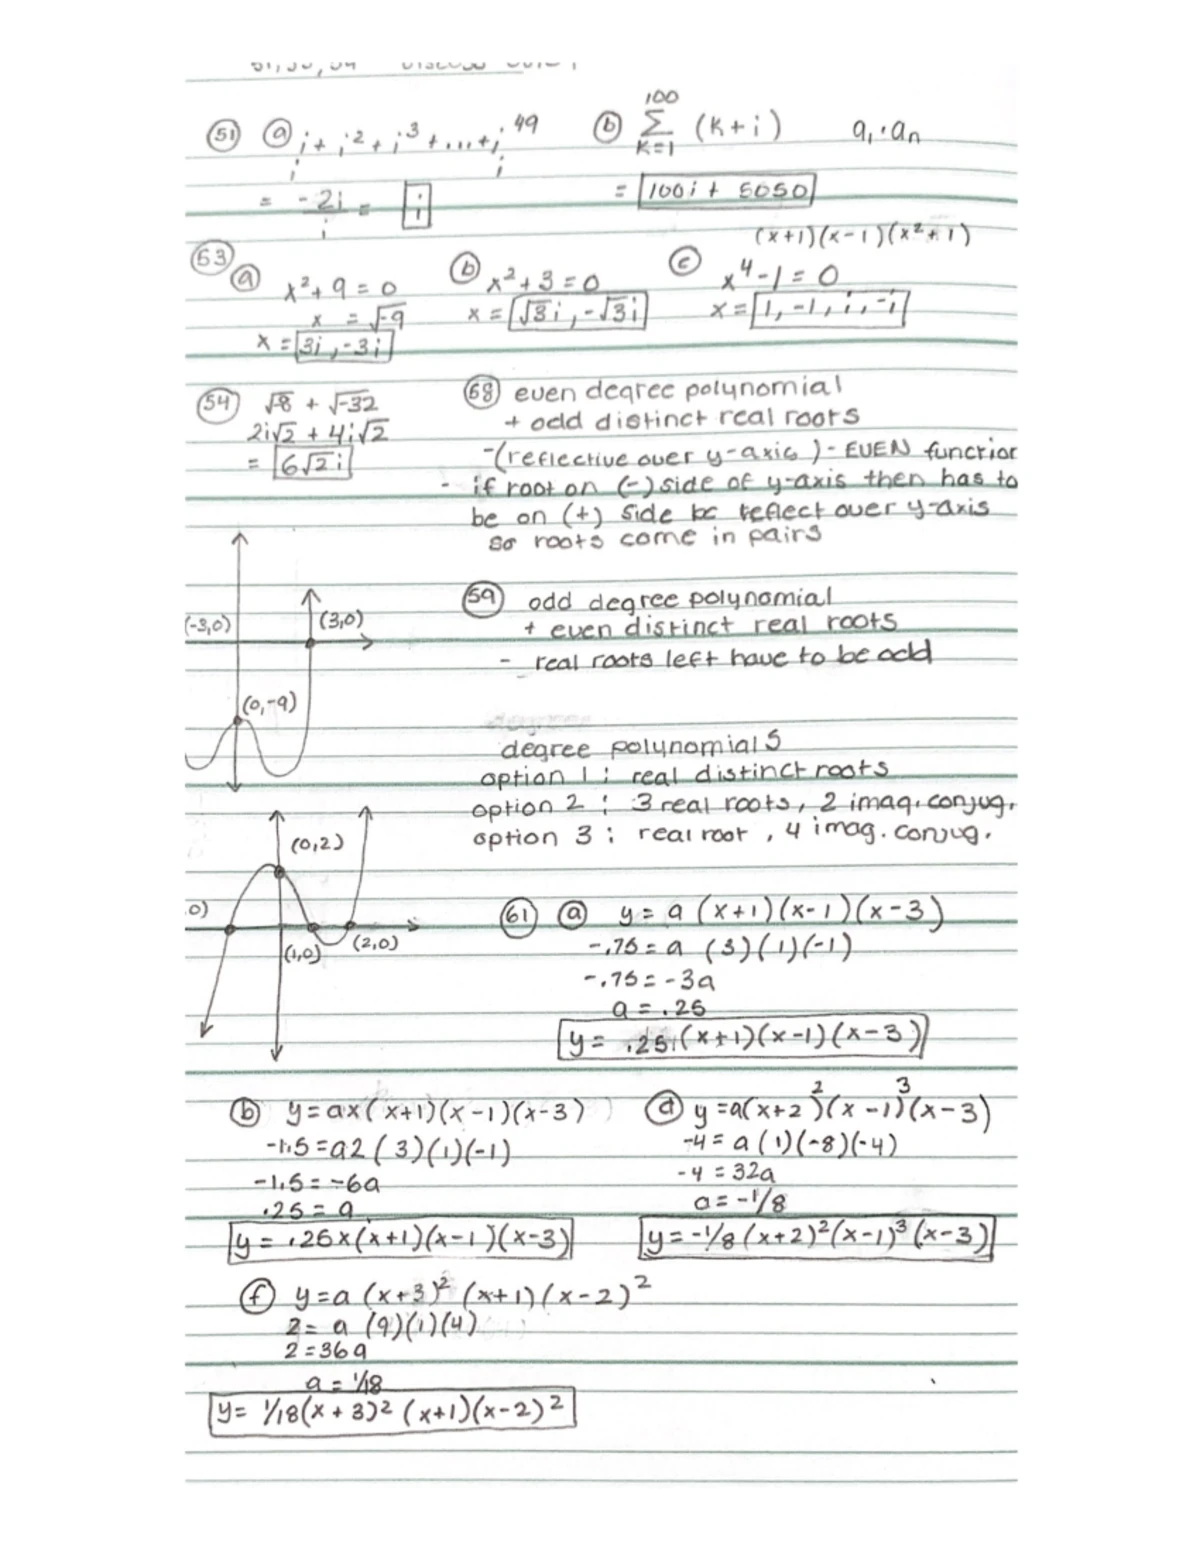 51 a i + i² + i³ + ... + i⁴⁹
i i
= -2i/i = i
b 100 Σ K=1 (K+i) a₁ · aₙ
= 100i + 5050
53
a x² + 9 = 0
x = √-9
x = 3i, -3i
b x² + 3 = 0
x = √3i, -√3i
(x+1)(x-1)(x²+1)
c x⁴ - 1 = 0
x = 1, -1, i, -i
54 √-8 + √-32
2i√2 + 4i√2
= 6√2i
58 even degree polynomial
+ odd distinct real roots
-(reflective over y-axis) - EVEN function
- if root on (-) side of y-axis then has to
be on (+) side bc reflect over y-axis
so roots come in pairs
(-3,0) (3,0)
(0,-9)
59 odd degree polynomial
+ even distinct real roots
- real roots left have to be odd
degree polynomials
option 1: real distinct roots
option 2: 3 real roots, 2 imag. conjug.
option 3: real root, 4 imag. conjug.
(0,2)
0)
(1,0) (2,0)
61 a y = a (x+1)(x-1)(x-3)
-.75 = a (3)(1)(-1)
-.75 = -3a
a = .25
y = .25(x+1)(x-1)(x-3)
b y = ax(x+1)(x-1)(x-3)
-1.5 = a2(3)(1)(-1)
-1.5 = -6a
.25 = a
y = .25x(x+1)(x-1)(x-3)
d y = a(x+2)²(x-1)³(x-3)
-4 = a(1)(-8)(-4)
-4 = 32a
a = -1/8
y = -1/8 (x+2)²(x-1)³(x-3)
f y = a (x+3)² (x+1)(x-2)²
2 = a (9)(1)(4)
2 = 36a
a = 1/18
y = 1/18(x+3)² (x+1)(x-2)²